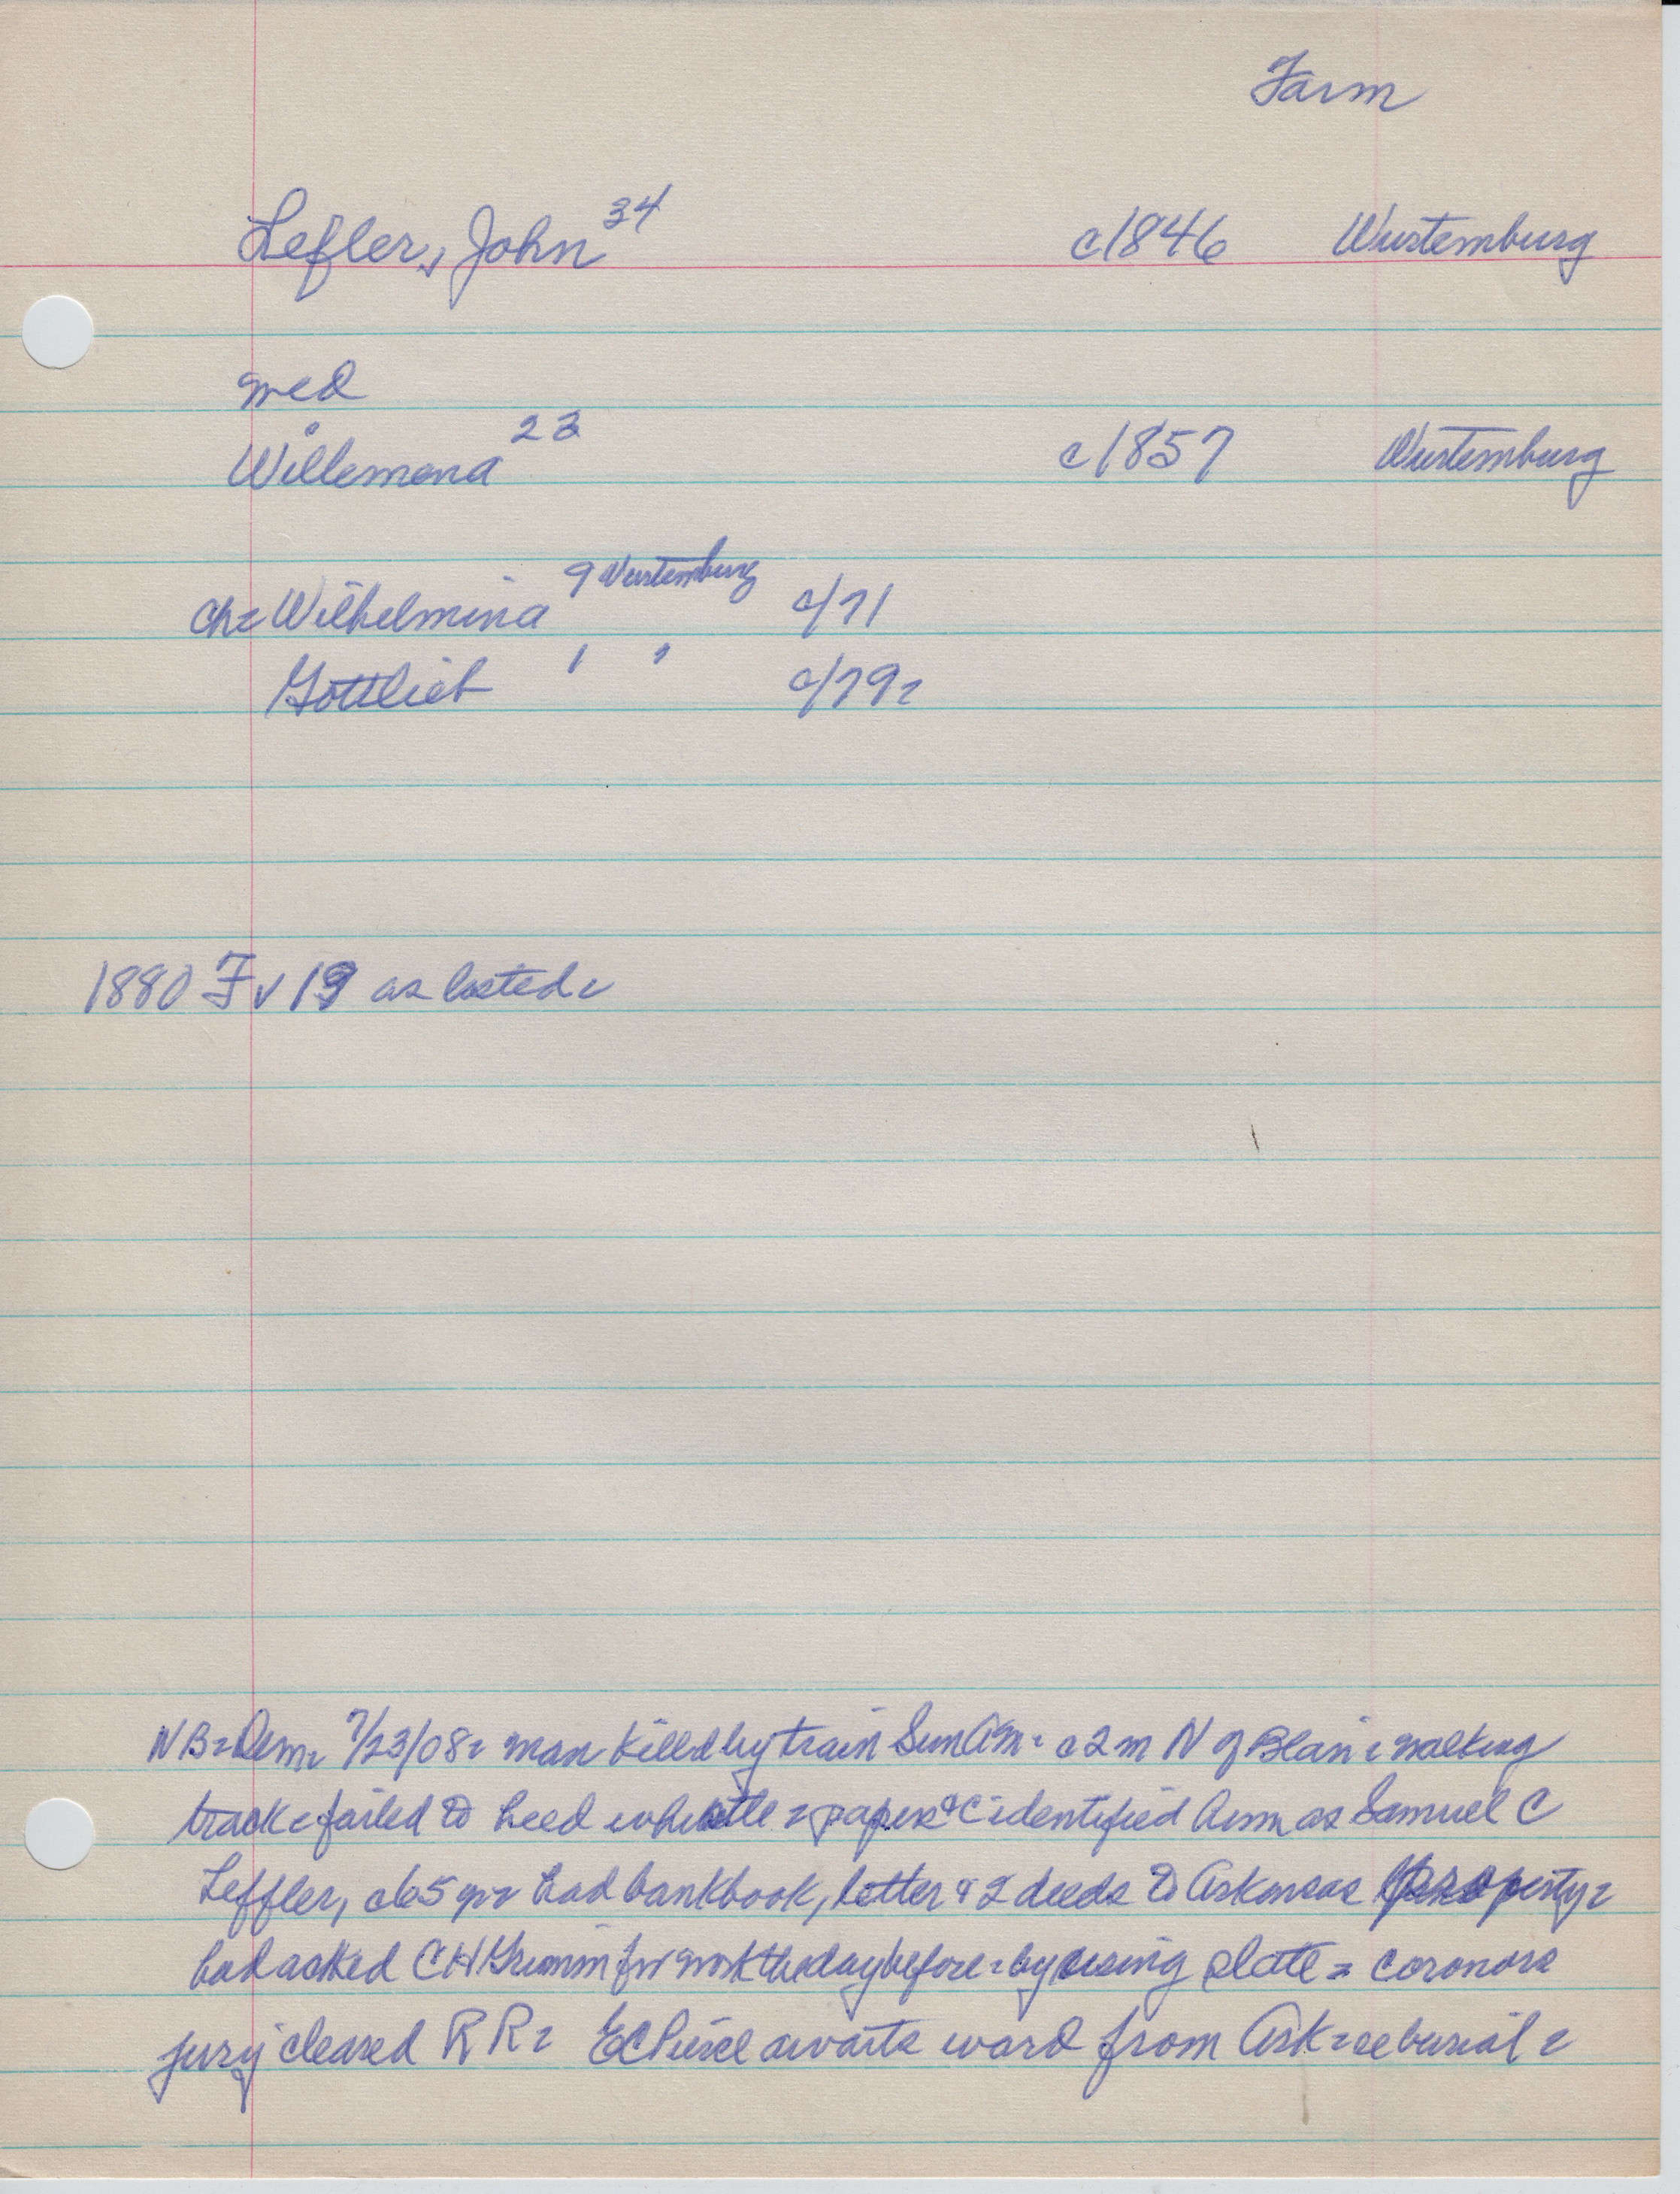 Farm
Lefler, John 34 c1846 Wurtemburg
med
Willemena 23 c1857 Wurtemburg
ch= Wilhelmina 9 Wurtemburg c/71
Gottlieb 1 " c/79=
1880 F v 19 as listed=
NB= Dem= 7/23/08= man killed by train Sun AM= c2m N of Blair= walking
track= failed to heed whistle= papers &C identified him as Samuel C
Leffler, c65 yr= had bankbook, letter & 2 deeds to Arkansas property=
had asked CH Grimm for work the day before= by using slate= coronors
jury cleared RR= EC Pierce awaits word from Ark= re burial=